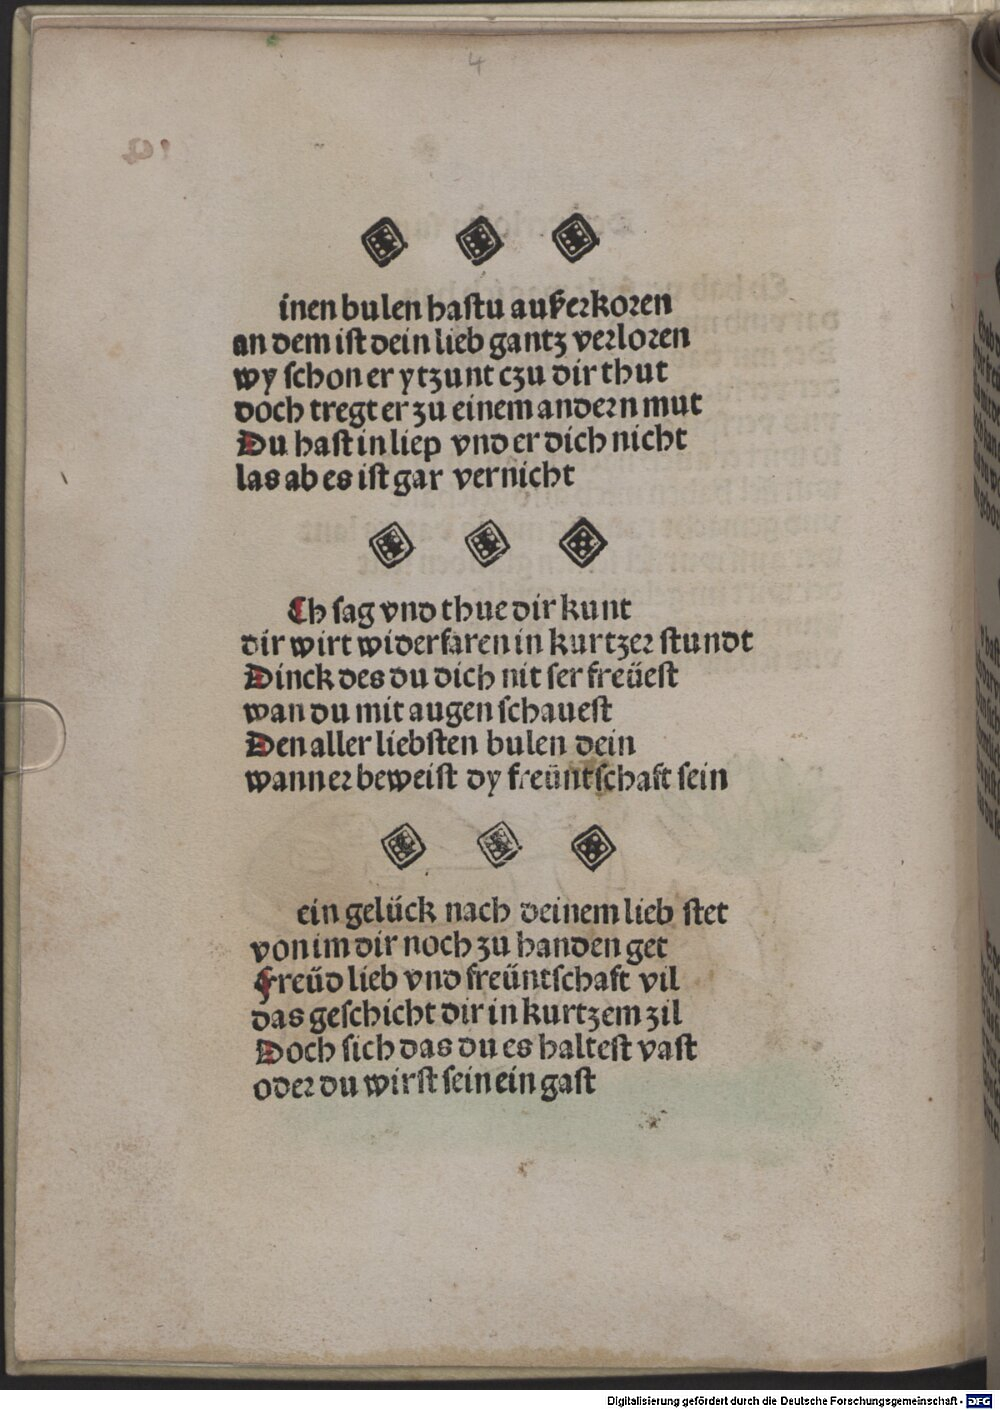 4
inen bulen haſtu auſʒerkoren
an dem iſt dein lieb gantz verloren
wy ſchon er ytzunt czu dir thut
doch tregt er zu einem andern mut
Du haſt in liep vnd er dich nicht
las ab es iſt gar vernicht
Ch ſag vnd thue dir kunt
dir wirt widerfaren in kurtzer ſtundt
Dinck des du dich nit ſer freüeſt
wan du mit augen ſchaueſt
Den aller liebſten bulen dein
wann er beweiſt dy freüntſchaft ſein
ein gelück nach deinem lieb ſtet
von im dir noch zu handen get
Freüd lieb vnd freüntſchaft vil
das geſchicht dir in kurtzem zil
Doch ſich das du es halteſt vaſt
oder du wirſt ſein ein gaſt
Digitalisierung gefördert durch die Deutsche Forschungsgemeinschaft - DFG